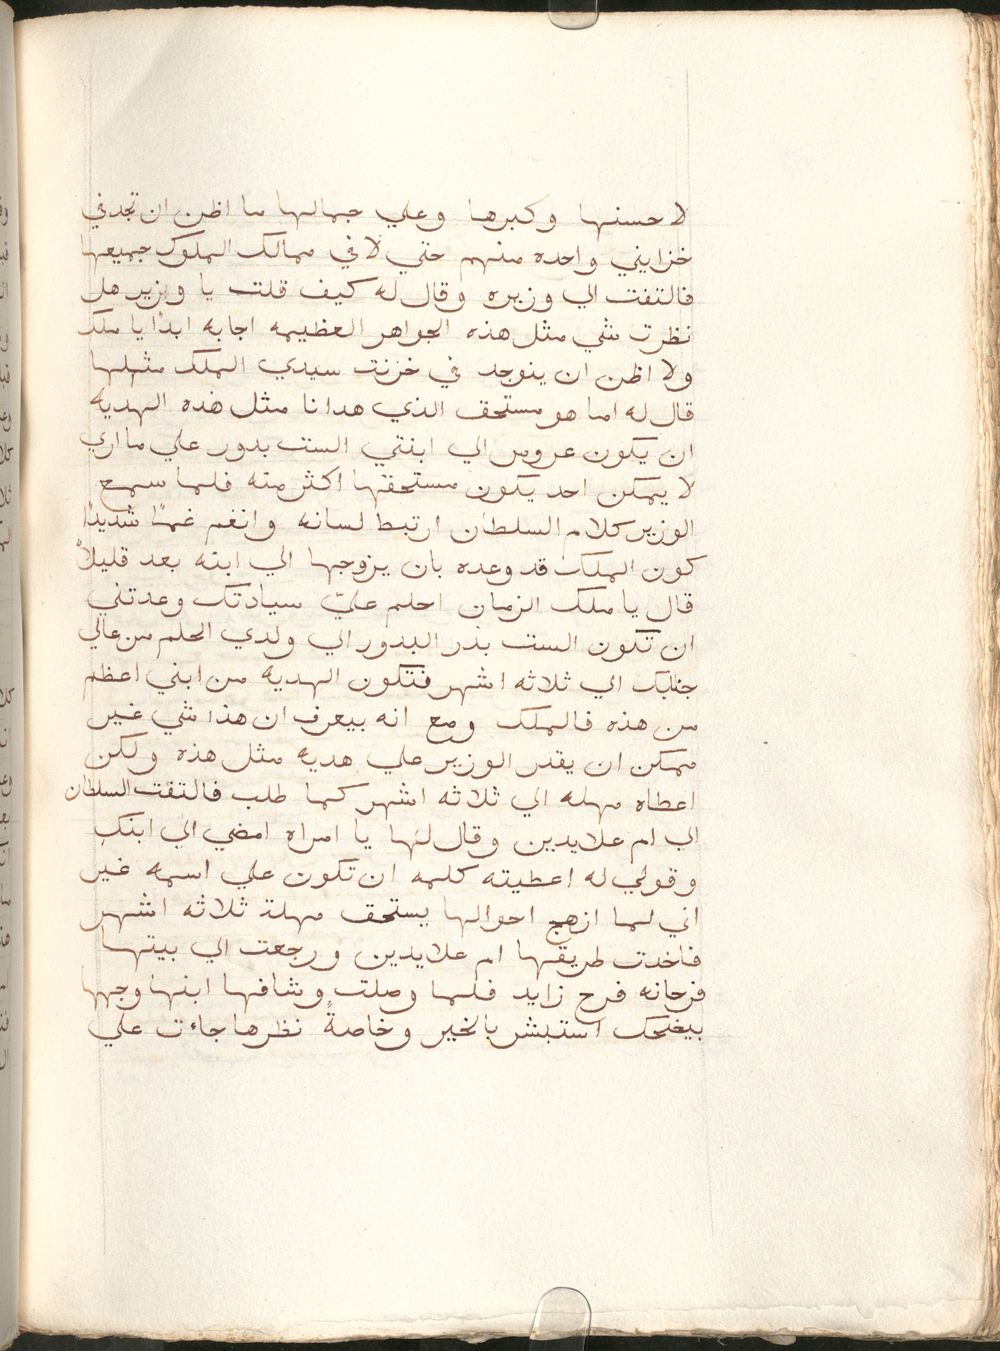 لا حسنها وكبرها وعلي جمالها ما اظن ان تجد في
خزايني واحده منهم حتي لا في ممالك الملوك جميعها
فالتفت الي وزيره وقال له كيف قلت يا وزير هل
نظرت شي مثل هذه الجواهر العظيمه اجابه ابدًا يا ملك
ولا اظن ان ينوجد في خزنت سيدي الملك مثلها
قال له اما هو مستحق الذي هدانا مثل هذه الهديه
ان يكون عروس الي ابنتي الست بدور علي ما اري
لا يمكن احد يكون مستحقها اكثر منه فلما سمع
الوزير كلام السلطان ارتبط لسانه وانغم غمًا شديدًا
كون الملك قد وعده بان يزوجها الي ابنه بعد قليلاً
قال يا ملك الزمان احلم عليّ سيادتك وعدتني
ان تكون الست بدر البدور الي ولدي الحلم من عالي
جنابك الي ثلاثه اشهر فتكون الهديه من ابني اعظم
من هذه فالملك ومع انه بيعرف ان هذا شي غير
ممكن ان يقدر الوزير علي هديه مثل هذه ولكن
اعطاه مهله الي ثلاثه اشهر كما طلب فالتفت السلطان
الي ام علايدين وقال لها يا امراه امضي الي ابنك
وقولي له اعطيته كلمه ان تكون علي اسمه غير
اني لما ازهج احوالها يستحق مهلة ثلاثه اشهر
فاخدت طريقها ام علايدين ورجعت الي بيتها
فرحانه فرح زايد فلما وصلت وشافها ابنها وجهها
بيضحك استبشر بالخير وخاصةً نظرها جاءت علي